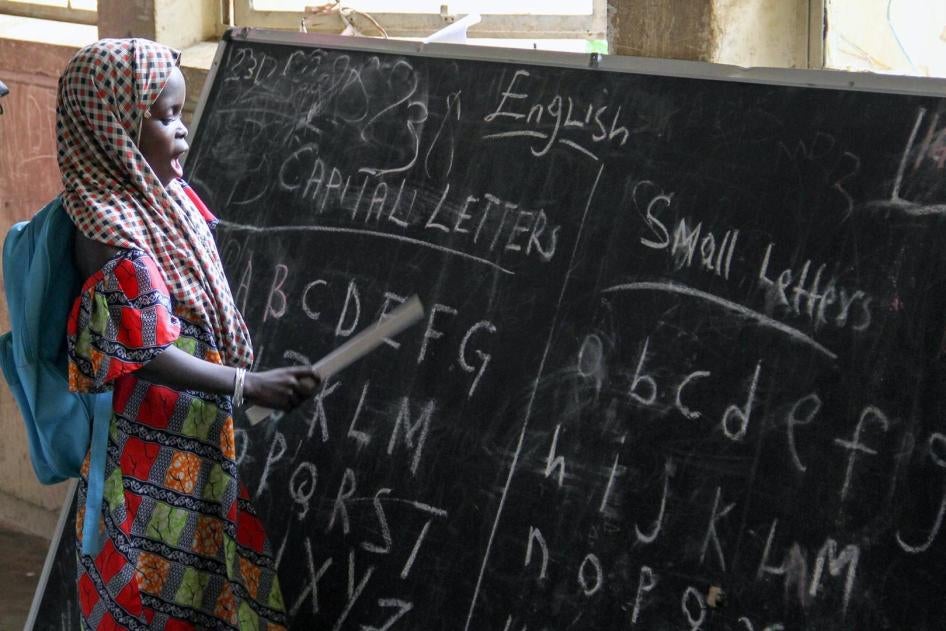 English
CAPITAL LETTERS
A B C D E F G
K L M
P Q R S T
X Y Z
Small Letters
a b c d e f g
h i J K L M
n o p q